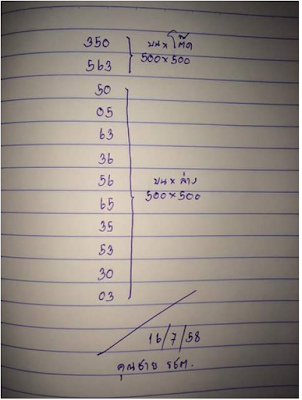 350
563
บน x โต๊ด
500 x 500
50
05
63
36
56
65
35
53
30
03
บน x ล่าง
500 x 500
16/7/58
คุณชาย รชต.